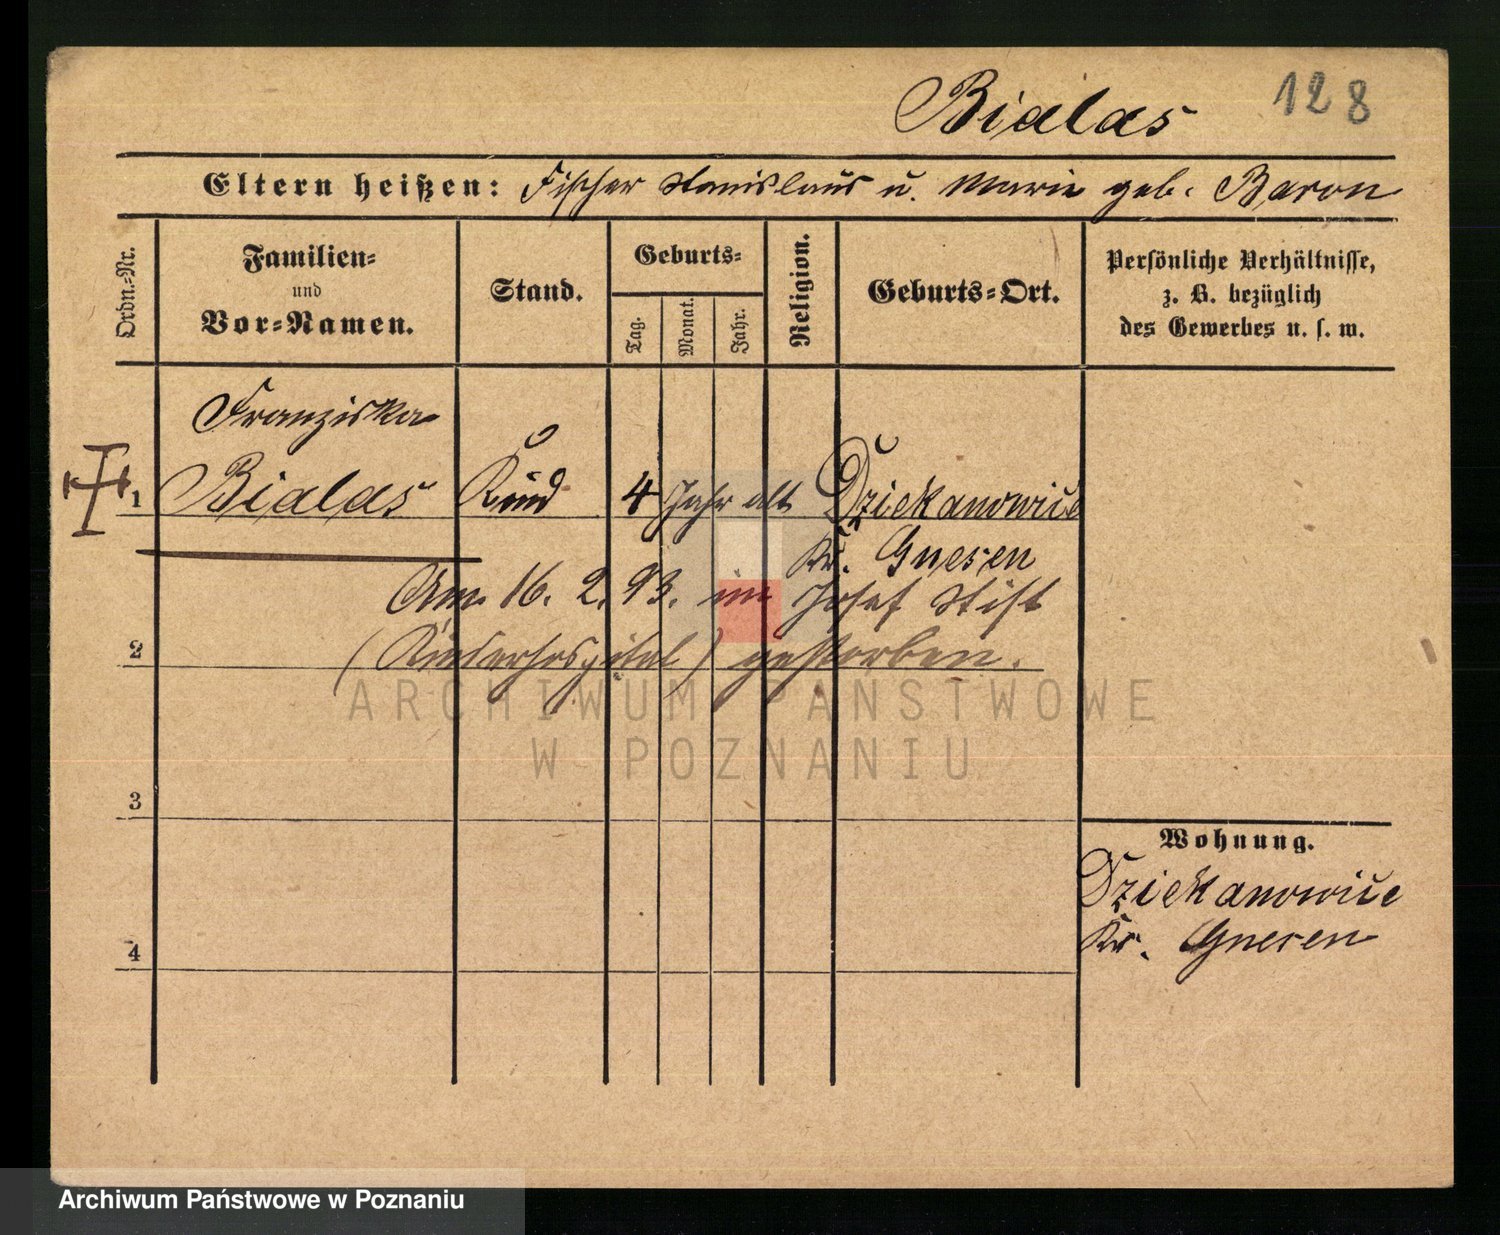 Bialas 128
Eltern heißen: Fischer Stanislaus u. Marie geb. Baron
Ordn.=Nr.
Familien=
und
Vor=Namen.
Stand.
Geburts=
Tag.
Monat.
Jahr.
Religion.
Geburts=Ort.
Persönliche Verhältnisse,
z. B. bezüglich
des Gewerbes u. s. w.
Franziska
1 Bialas Kind 4 Jahr alt Dziekanowice
Kr. Gnesen
Am 16. 2. 93. im Josef Stift
2 (Kinderhospital) gestorben.
3
4
Wohnung.
Dziekanowice
Kr. Gnesen
ARCHIWUM PAŃSTWOWE
W POZNANIU
Archiwum Państwowe w Poznaniu